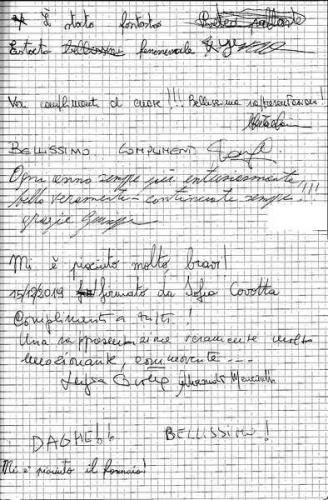 È stato fantastico
Estato bellissimo fenomenale
Veri complimenti di cuore!!! Bellissima rappresentazione!
BELLISSIMO. COMPLIMENTI
Ogni anno sempre più
bello veramente - continuate sempre!!!
grazie
Mi è piaciuto molto bravi!
15/12/2019 formato da Sofia Covotta
Complimenti a tutti!
Una rappresentazione veramente molto
emozionante, commovente ---
Luisa
DAGHE66 BELLISSIMO!
Mi è piaciuto il fornaio!